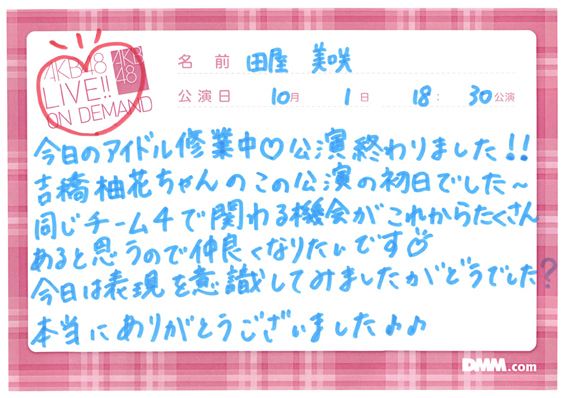 AKB48
LIVE!!
ON DEMAND
AKB
48
名前 田屋 美咲
公演日 10月 1日 18:30公演
今日のアイドル修業中♡公演終わりました!!
吉橋柚花ちゃんのこの公演の初日でした〜
同じチーム4で関わる機会がこれからたくさん
あると思うので仲良くなりたいです♡
今日は表現を意識してみましたがどうでした?
本当にありがとうございました♪♪
DMM.com